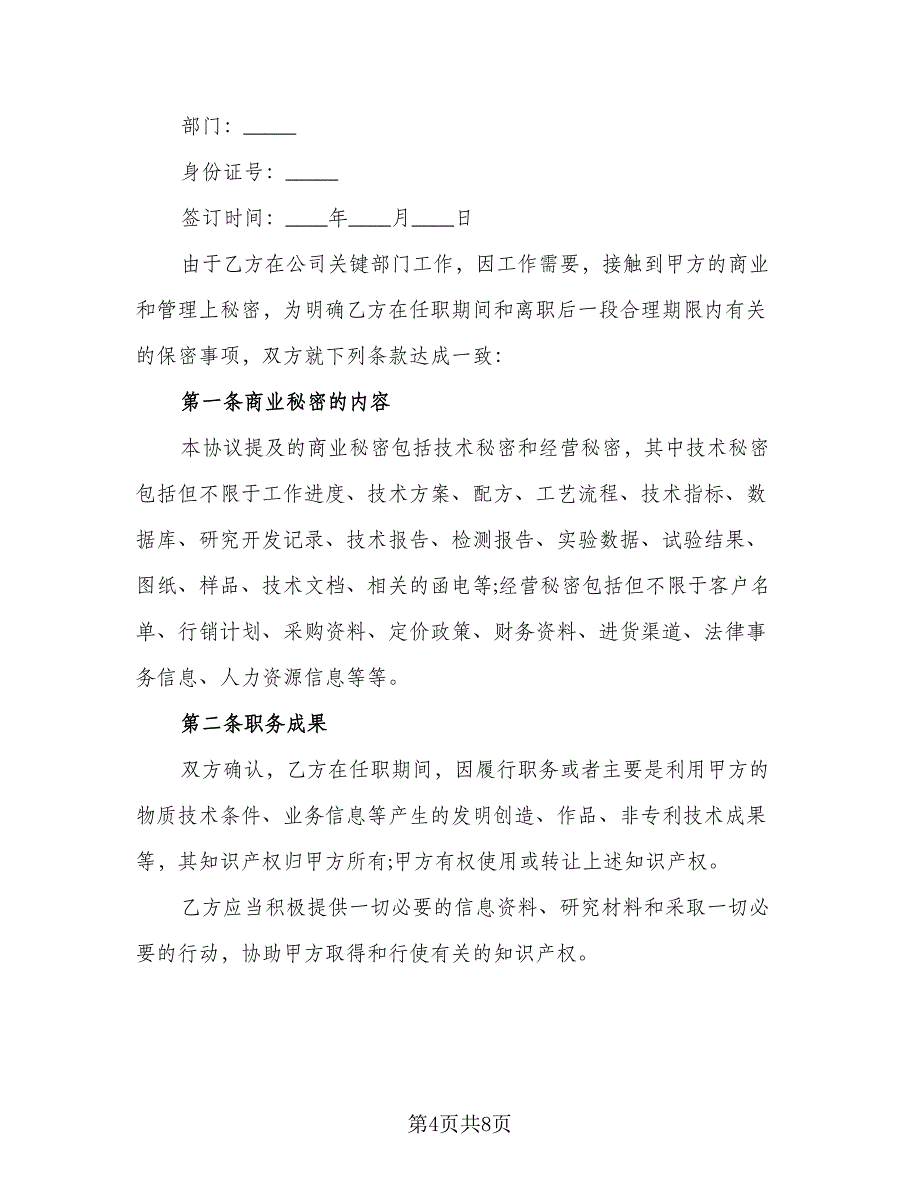 部门：_____
身份证号：_____
签订时间：____年____月____日
由于乙方在公司关键部门工作，因工作需要，接触到甲方的商业
和管理上秘密，为明确乙方在任职期间和离职后一段合理期限内有关
的保密事项，双方就下列条款达成一致：
第一条商业秘密的内容
本协议提及的商业秘密包括技术秘密和经营秘密，其中技术秘密
包括但不限于工作进度、技术方案、配方、工艺流程、技术指标、数
据库、研究开发记录、技术报告、检测报告、实验数据、试验结果、
图纸、样品、技术文档、相关的函电等;经营秘密包括但不限于客户名
单、行销计划、采购资料、定价政策、财务资料、进货渠道、法律事
务信息、人力资源信息等等。
第二条职务成果
双方确认，乙方在任职期间，因履行职务或者主要是利用甲方的
物质技术条件、业务信息等产生的发明创造、作品、非专利技术成果
等，其知识产权归甲方所有;甲方有权使用或转让上述知识产权。
乙方应当积极提供一切必要的信息资料、研究材料和采取一切必
要的行动，协助甲方取得和行使有关的知识产权。
第4页共8页